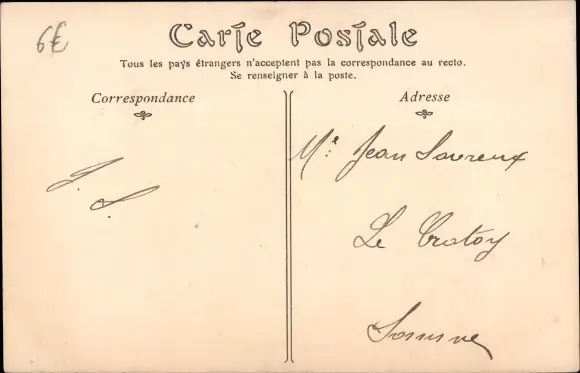 6€
Carte Postale
Tous les pays étrangers n'acceptent pas la correspondance au recto.
Se renseigner à la poste.
Correspondance
Adresse
Mr Jean
Le Crotoy
Somme